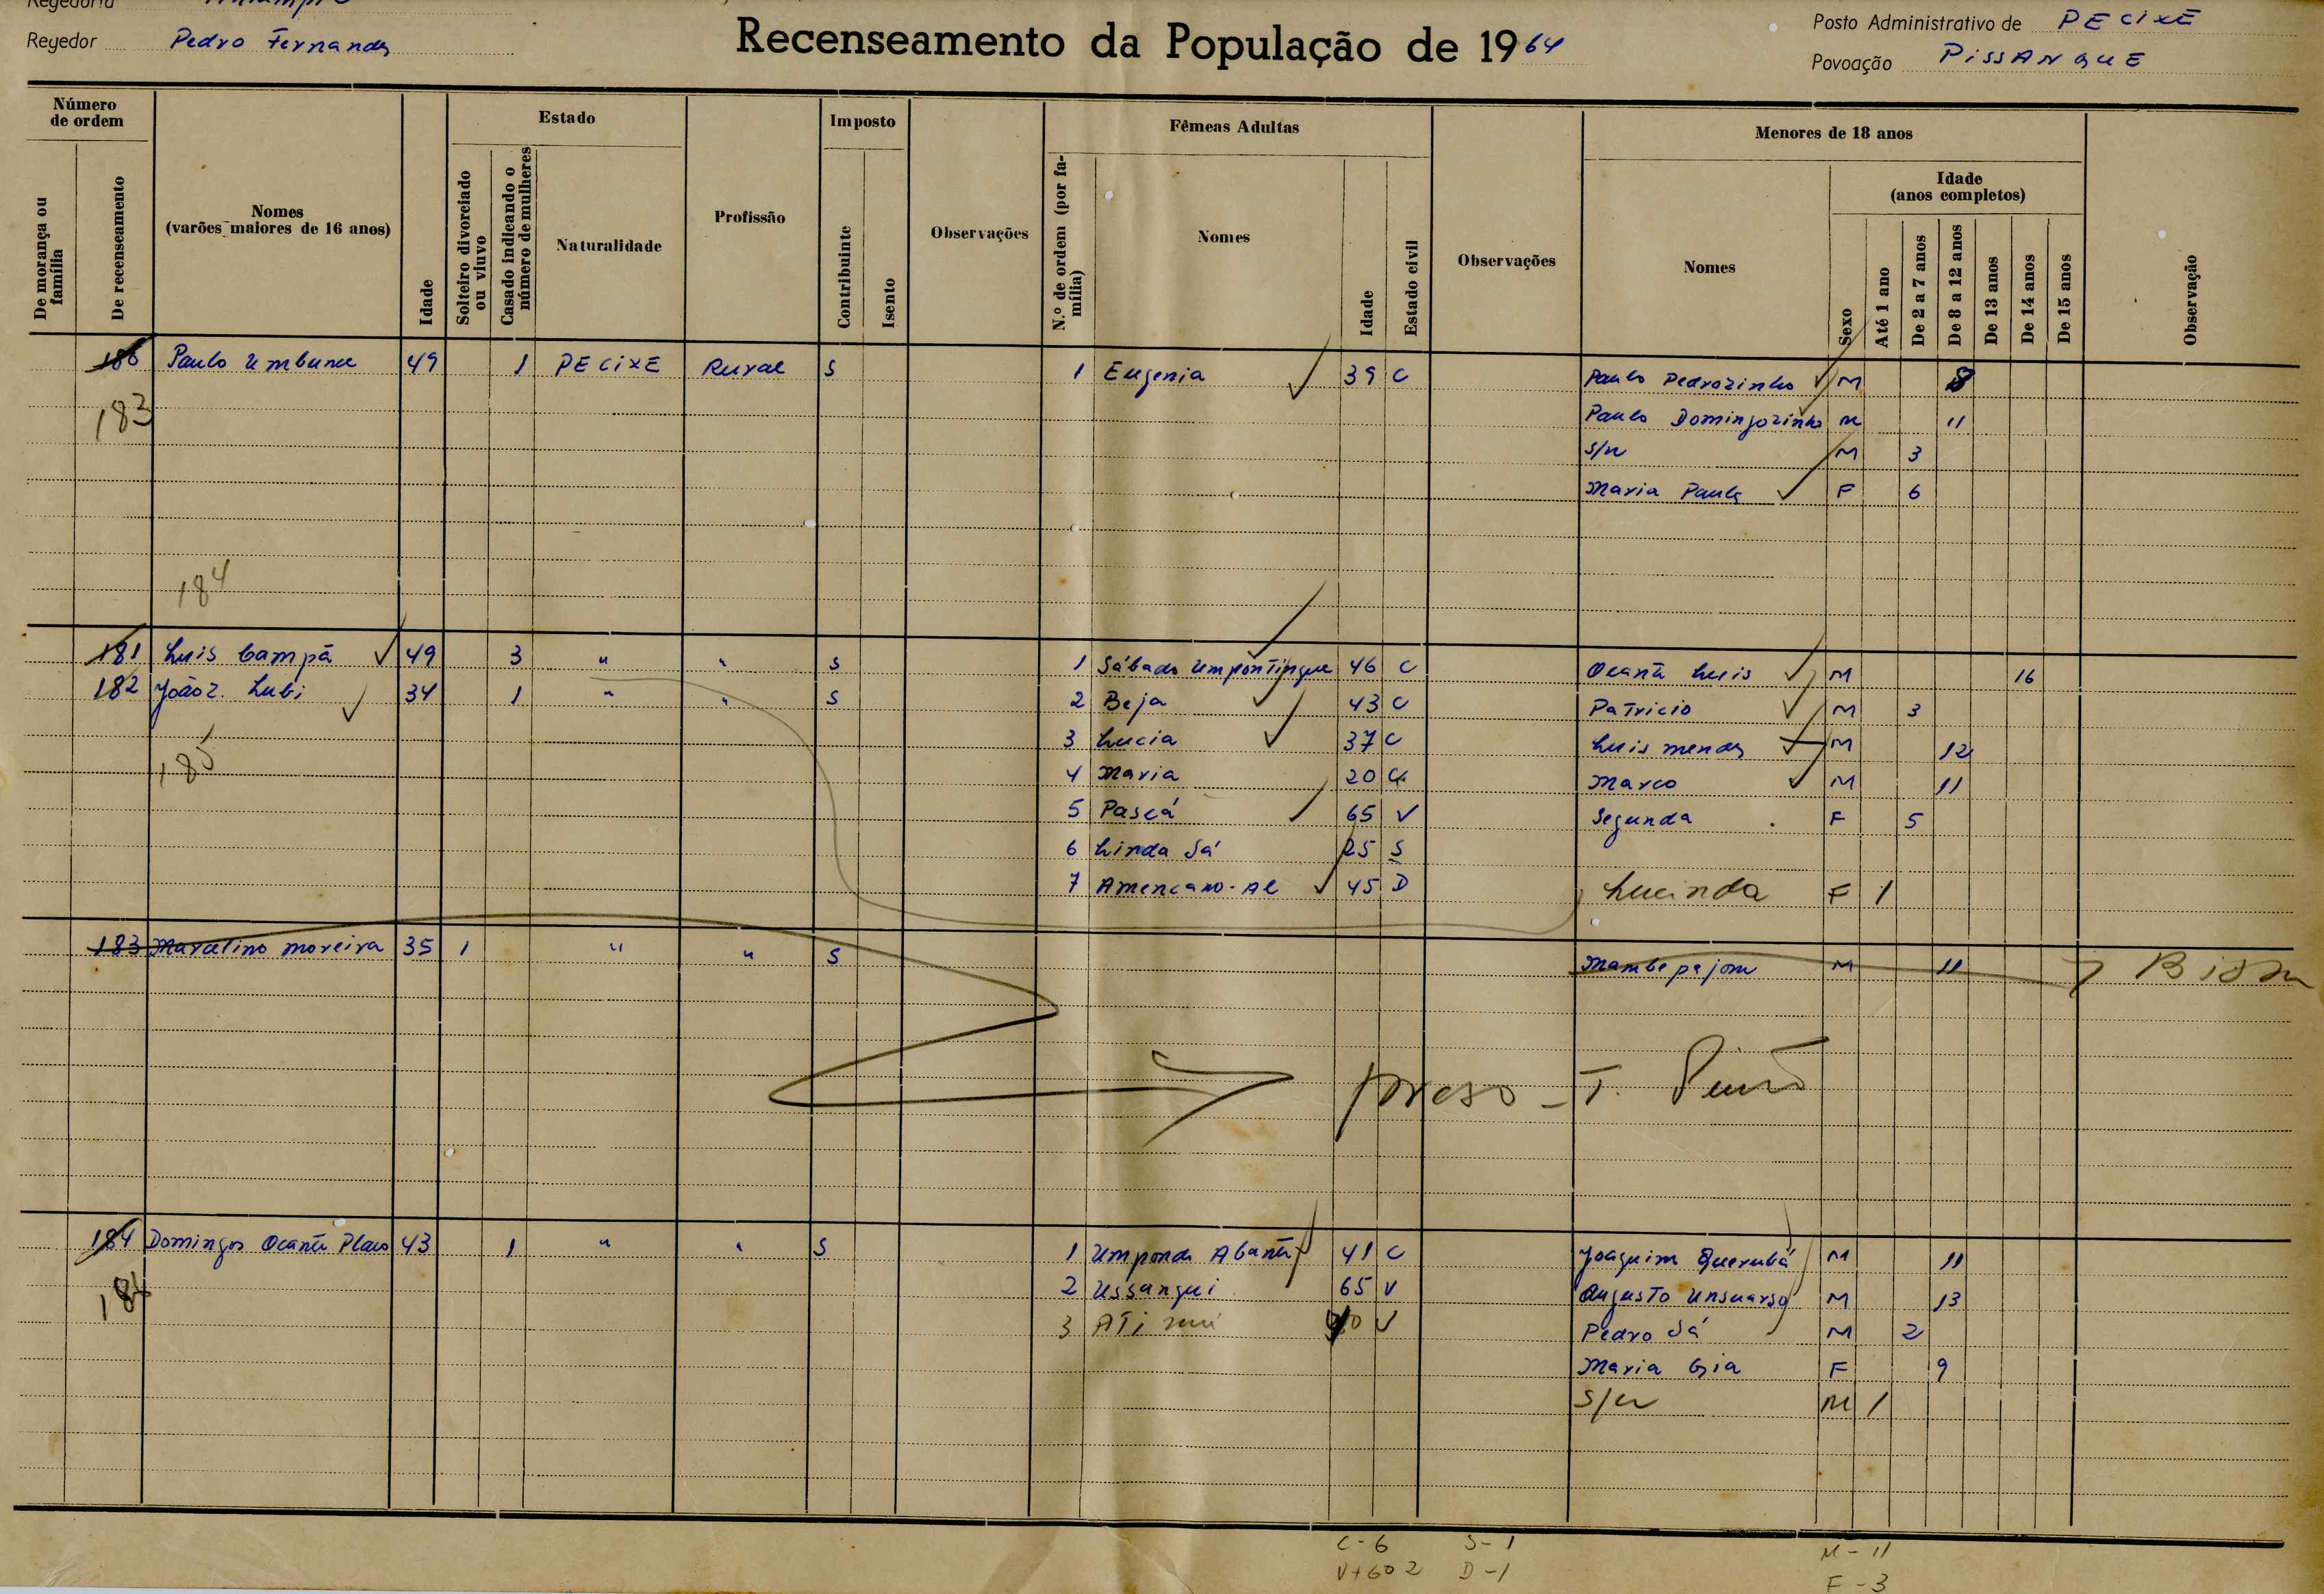 Regedoria
Regedor Pedro Fernandes
Recenseamento da População de 1964
Posto Administrativo de PECIXE
Povoação PISSANQUE
Número de ordem
De morança ou família
De recenseamento
Nomes (varões maiores de 16 anos)
Idade
Estado
Solteiro divorciado ou viuvo
Casado indicando o número de mulheres
Naturalidade
Profissão
Imposto
Contribuinte
Isento
Observações
Fêmeas Adultas
N.º de ordem (por família)
Nomes
Idade
Estado civil
Observações
Menores de 18 anos
Nomes
Sexo
Idade (anos completos)
Até 1 ano
De 2 a 7 anos
De 8 a 12 anos
De 13 anos
De 14 anos
De 15 anos
Observação
180 Paulo Umbana 49 1 PECIXE Rural S 1 Eugenia 39 C Paulo Pedrozinho M 8
183 Paulo Domingozinho M 11
S/n M 3
Maria Paula F 6
184
181 Luis Campã 49 3 " " S 1 Sábado Umpontingue 46 C Ocantã Luis M 16
182 João Z. Lubi 34 1 " " S 2 Beja 43 C Patricio M 3
3 Lucia 37 C Luis mendes M 12
185 4 Maria 20 C Marco M 11
5 Pascá 65 V Segunda F 5
6 Linda Sá 25 S
7 Amencano-Al 45 D Lucinda F 1
183 Marcelino moreira 35 1 " " S Mambepajom M 11
preso - T.
184 Domingos Ocante Placo 43 1 " " S 1 Umponda Abantã 41 C Joaquim Querubá M 11
186 2 Ussangui 65 V Augusto Unsuarso M 13
3 Ati V Pedro Sá M 2
Maria Gia F 9
S/n M 1
C-6 S-1 M-11
V+60 2 D-1 F-3